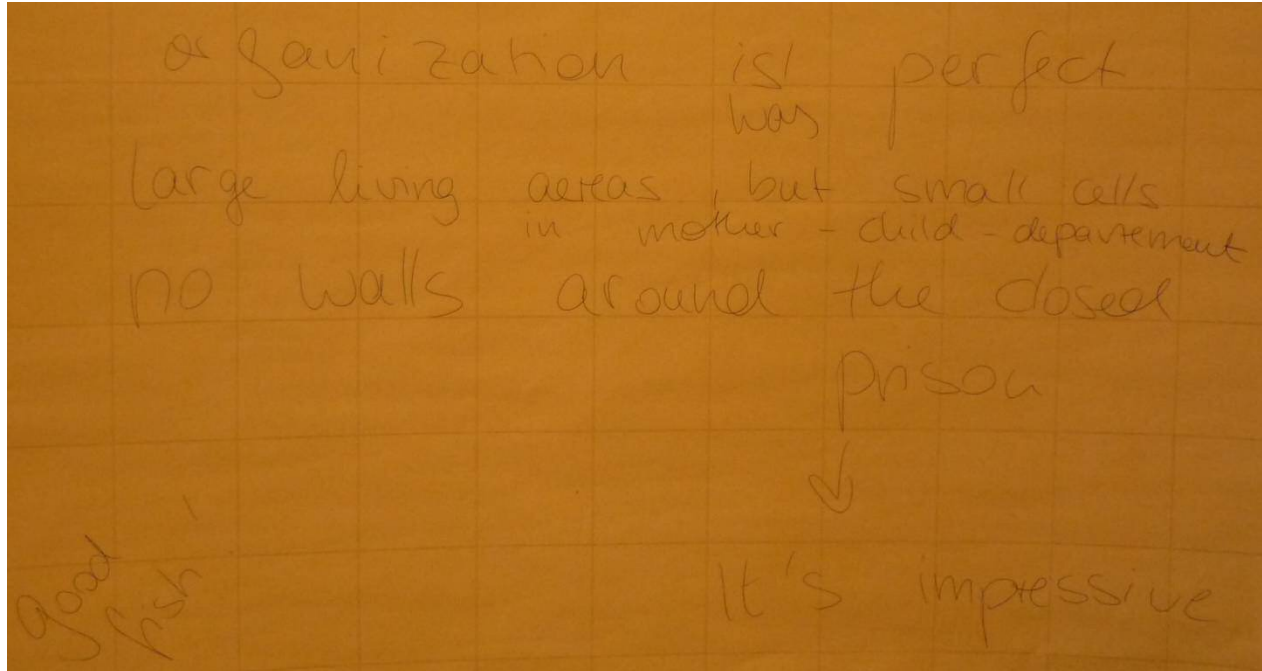 organization is/ perfect
was
large living aereas, but small cells
in mother-child-departement
no walls around the closed
prison
↓
It's impressive
good
fish!